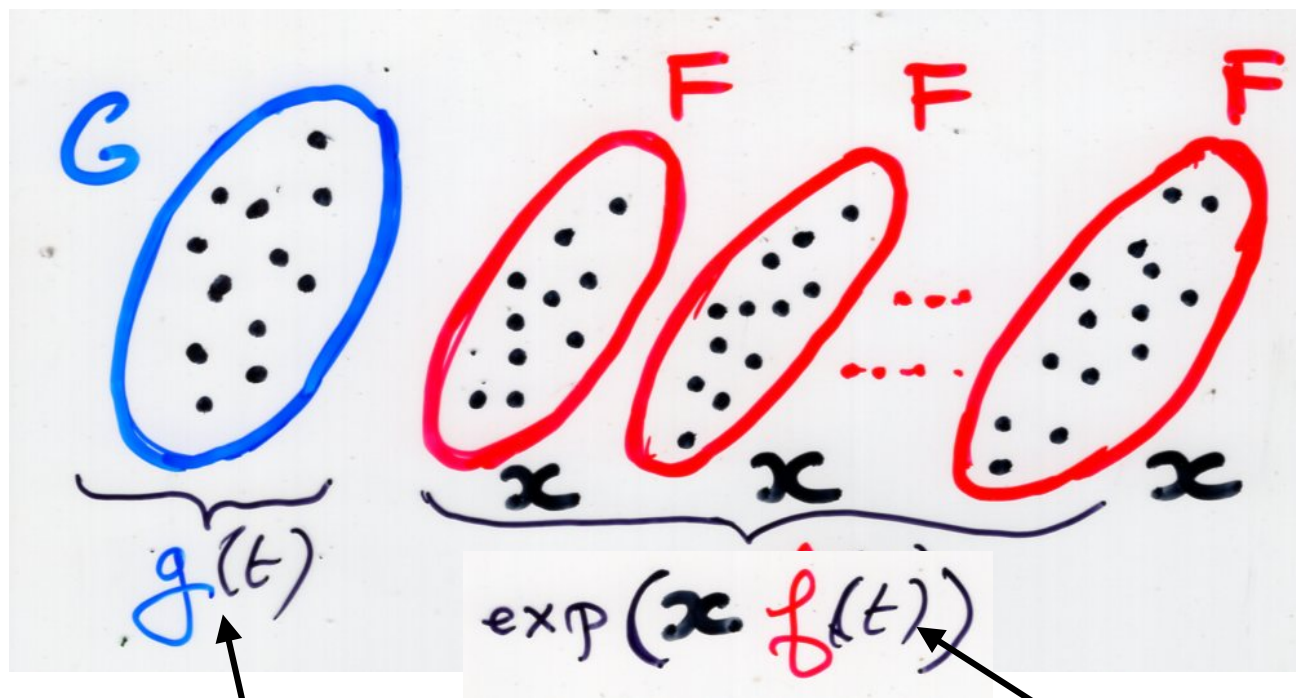 F F F
G
x x x
g(t)
exp(x f(t))